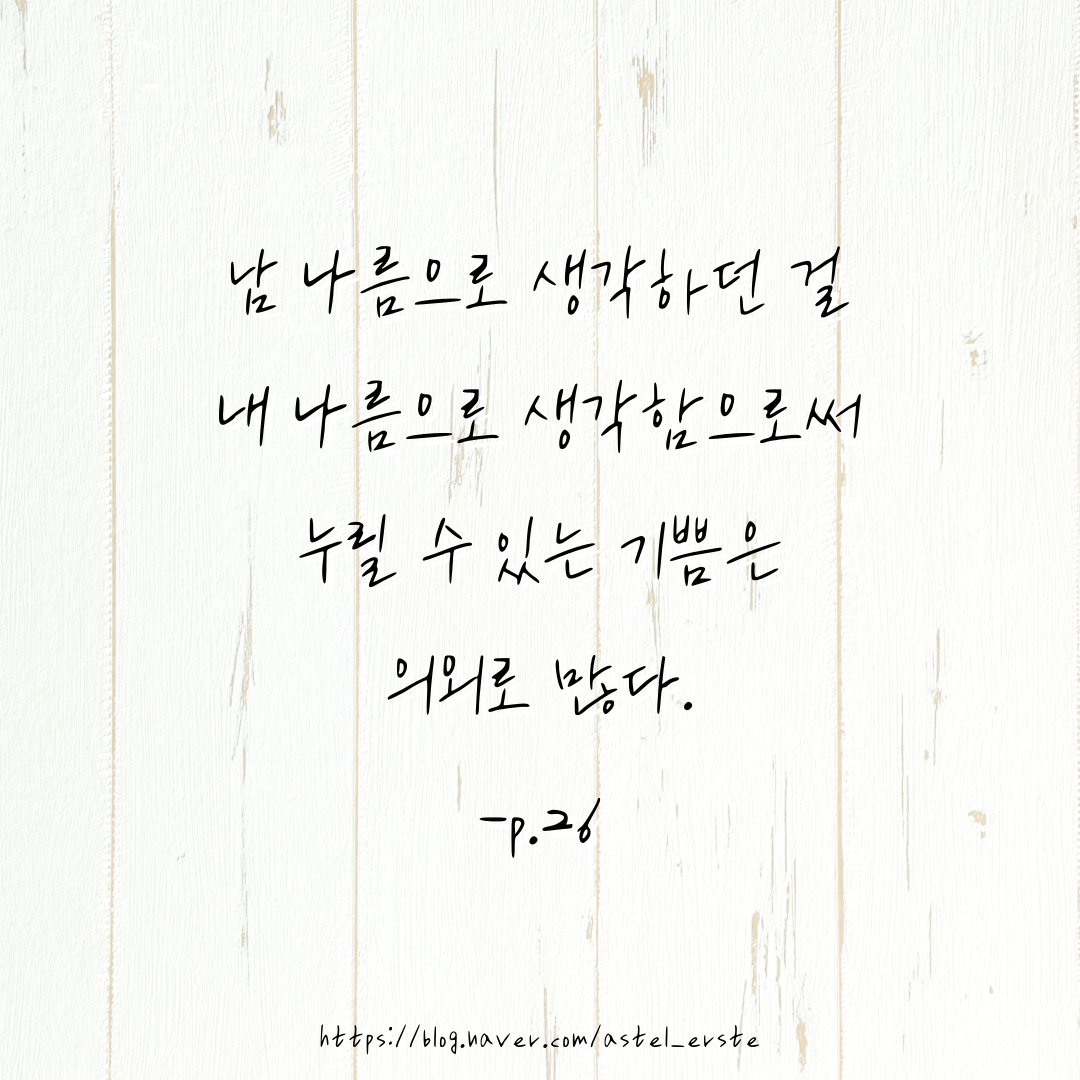 남 나름으로 생각하던 걸
내 나름으로 생각함으로써
누릴 수 있는 기쁨은
의외로 많다.
-p.26
https://blog.naver.com/astel_erste